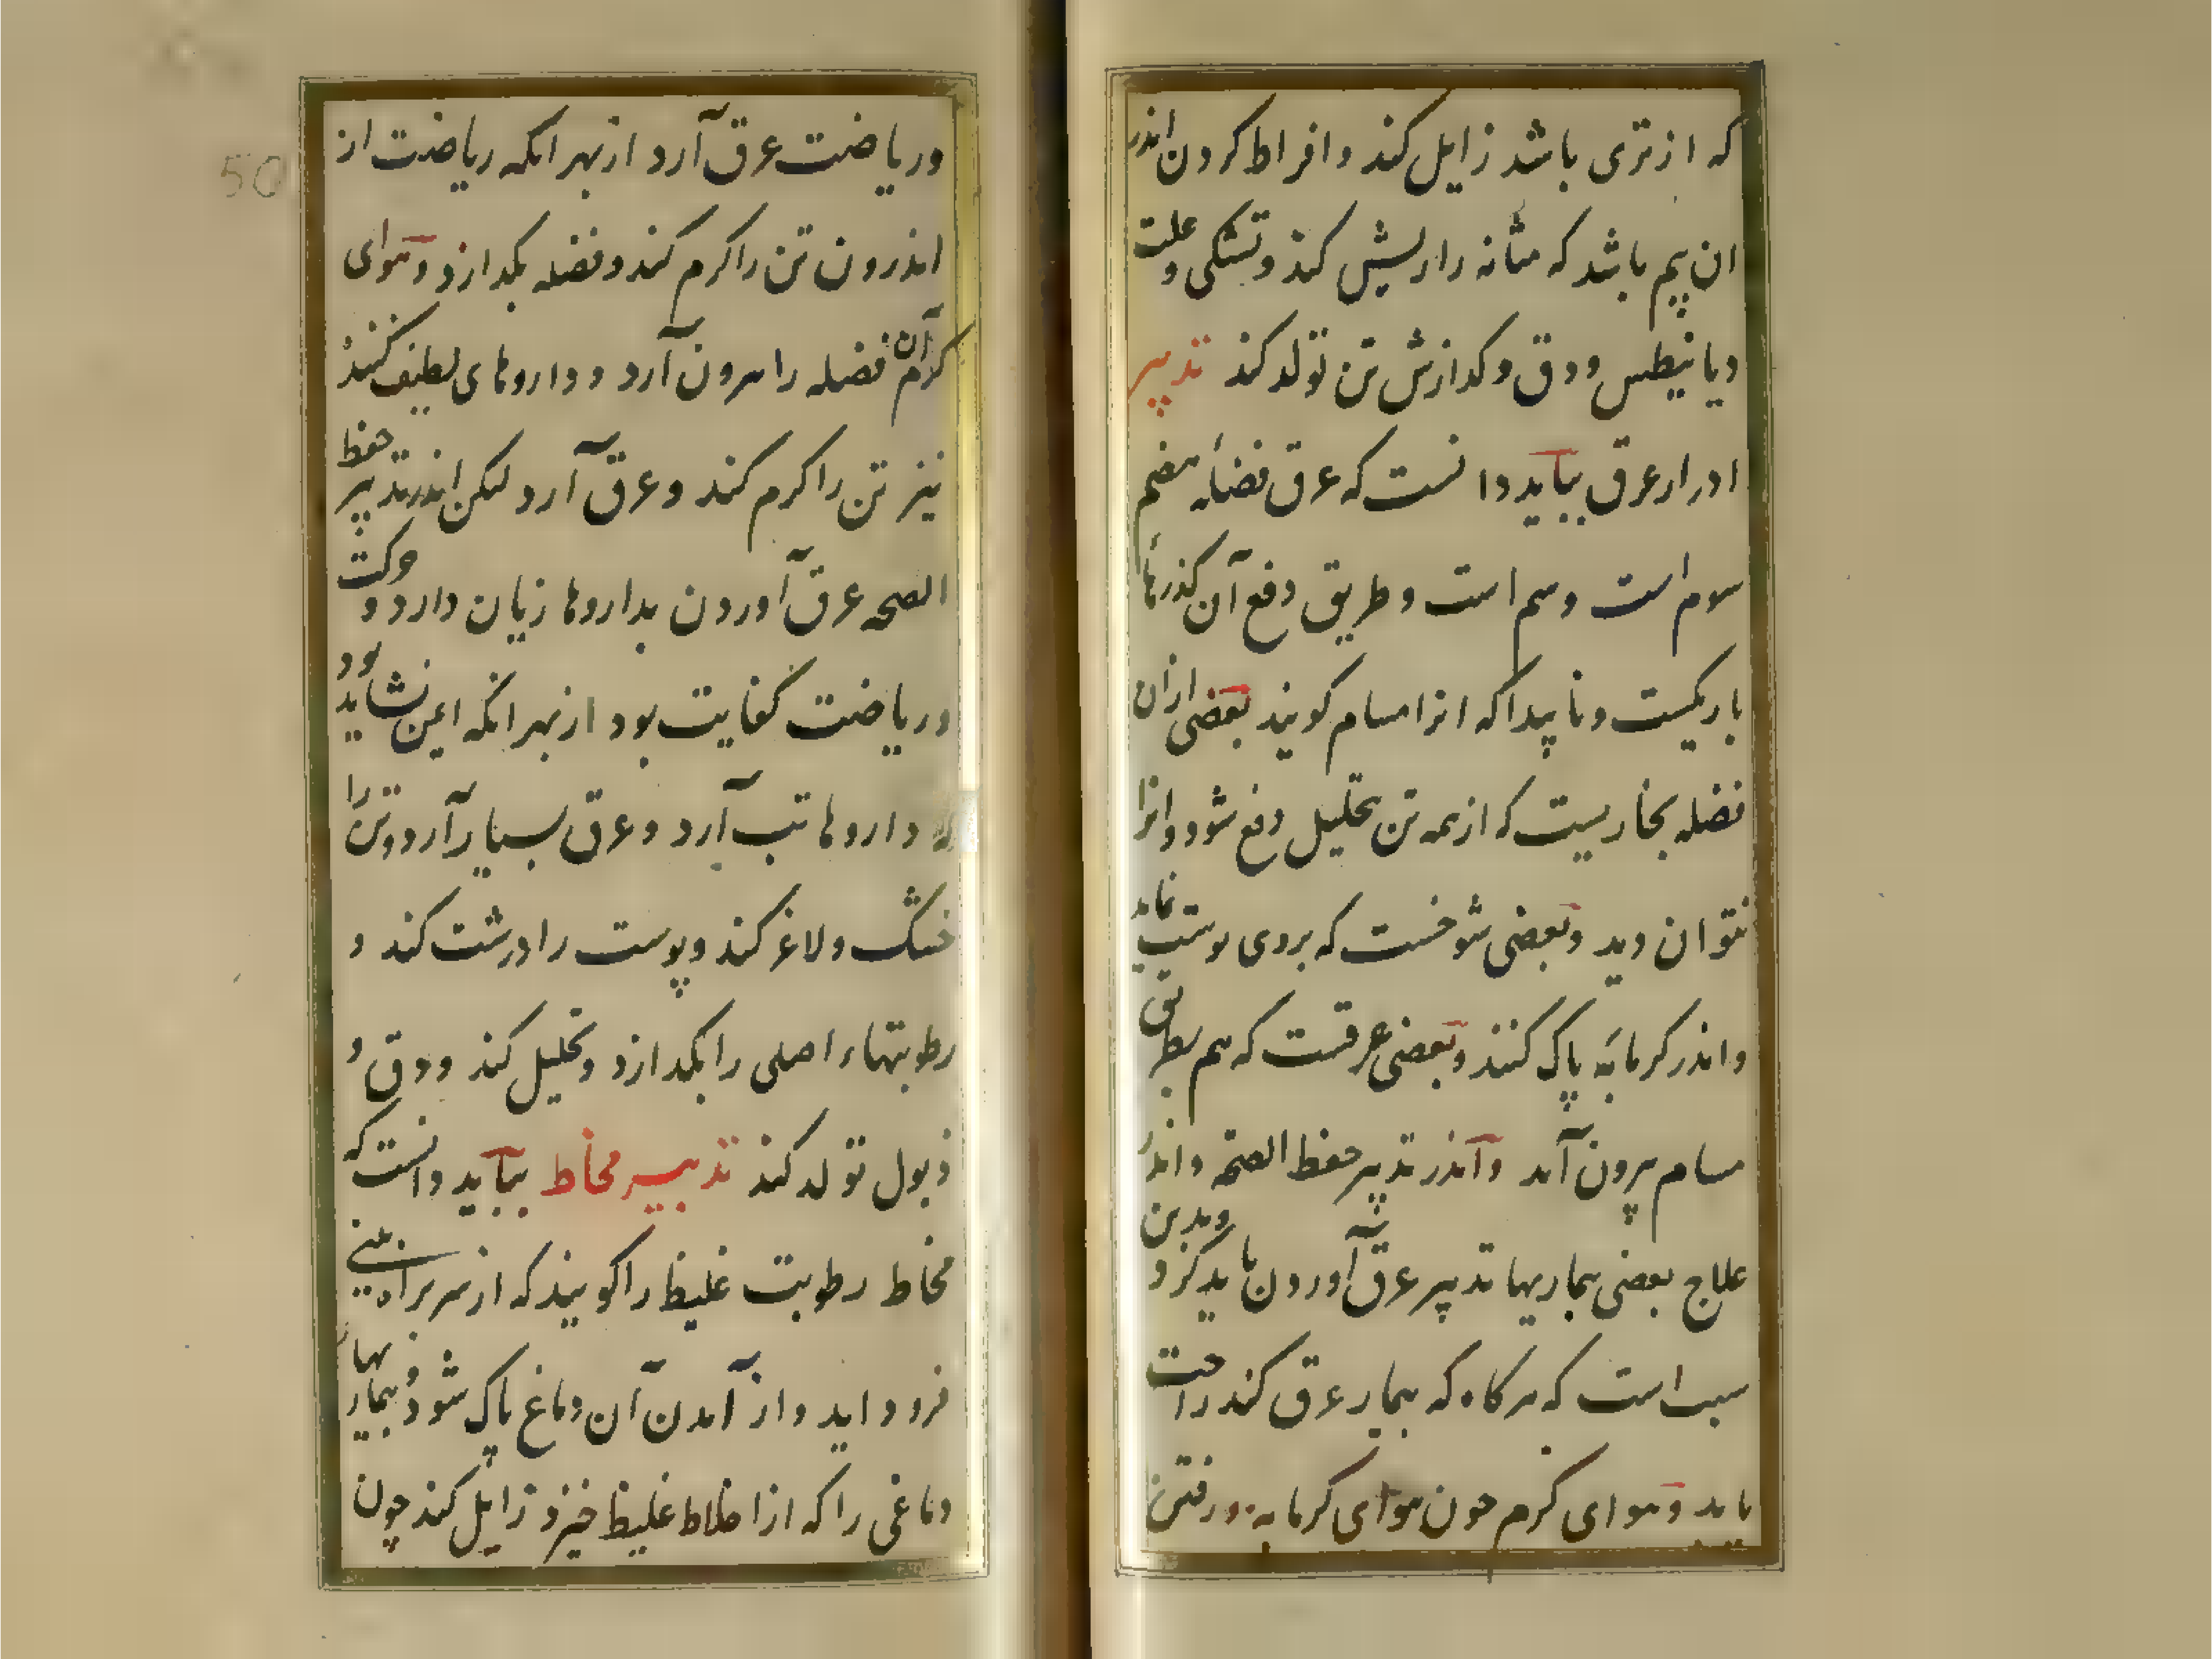 که از تری باشد زایل کند و افراط کردن اندر
ان بیم باشد که مثانه را ریش کند و تشنگی و علت
دیانیطس و دق و کدازش تن تولد کند تدبیر
ادرار عرق بباید دانست که عرق فضلۀ هضم
سوم است و طریق دفع آن کذرها
باریکست و ناپیدا که انرا مسام کویند بعضی ازان
فضله بخاریست که از همه تن بتحلیل دفع شود و انرا
نتوان دید و بعضی شوخست که بروی پوست نماید
و اندر کرمابه پاک کنند و بعضی عرقست که هم بطریق
مسام بیرون آید و اندر تدبیر حفظ الصحة و اندر
علاج بعضی بیماریها تدبیر عرق آوردن باید کرد و بدین
سبب است که هرکاه که بیمار عرق کند راحت
یابد و هوای کرم چون هوای کرمابه و در رفتن
50
و ریاضت عرق آرد از بهر انکه ریاضت از
اندرون تن را کرم کند و فضله بکدازد و هوای
کرم آن فضله را بیرون آرد و داروهای لطیف کننده
نیز تن را کرم کند و عرق آرد لیکن اندر تدبیر حفظ
الصحه عرق آوردن بداروها زیان دارد و حرکت
و ریاضت کفایت بود از بهر انکه ایمن نشاید بود
که داروها تب آرد و عرق بسیار آرد و تن را
خشک و لاغر کند و پوست را درشت کند و
رطوبتهاء اصلی را بکدازد و تحلیل کند و دق و
ذبول تولد کند تدبیر مخاط بباید دانست که
مخاط رطوبت غلیظ را کویند که از سر براه بینی
فرود اید و از آمدن آن دماغ پاک شود و بیماریهاء
دماغی را که از اخلاط غلیظ خیزد زایل کند چون